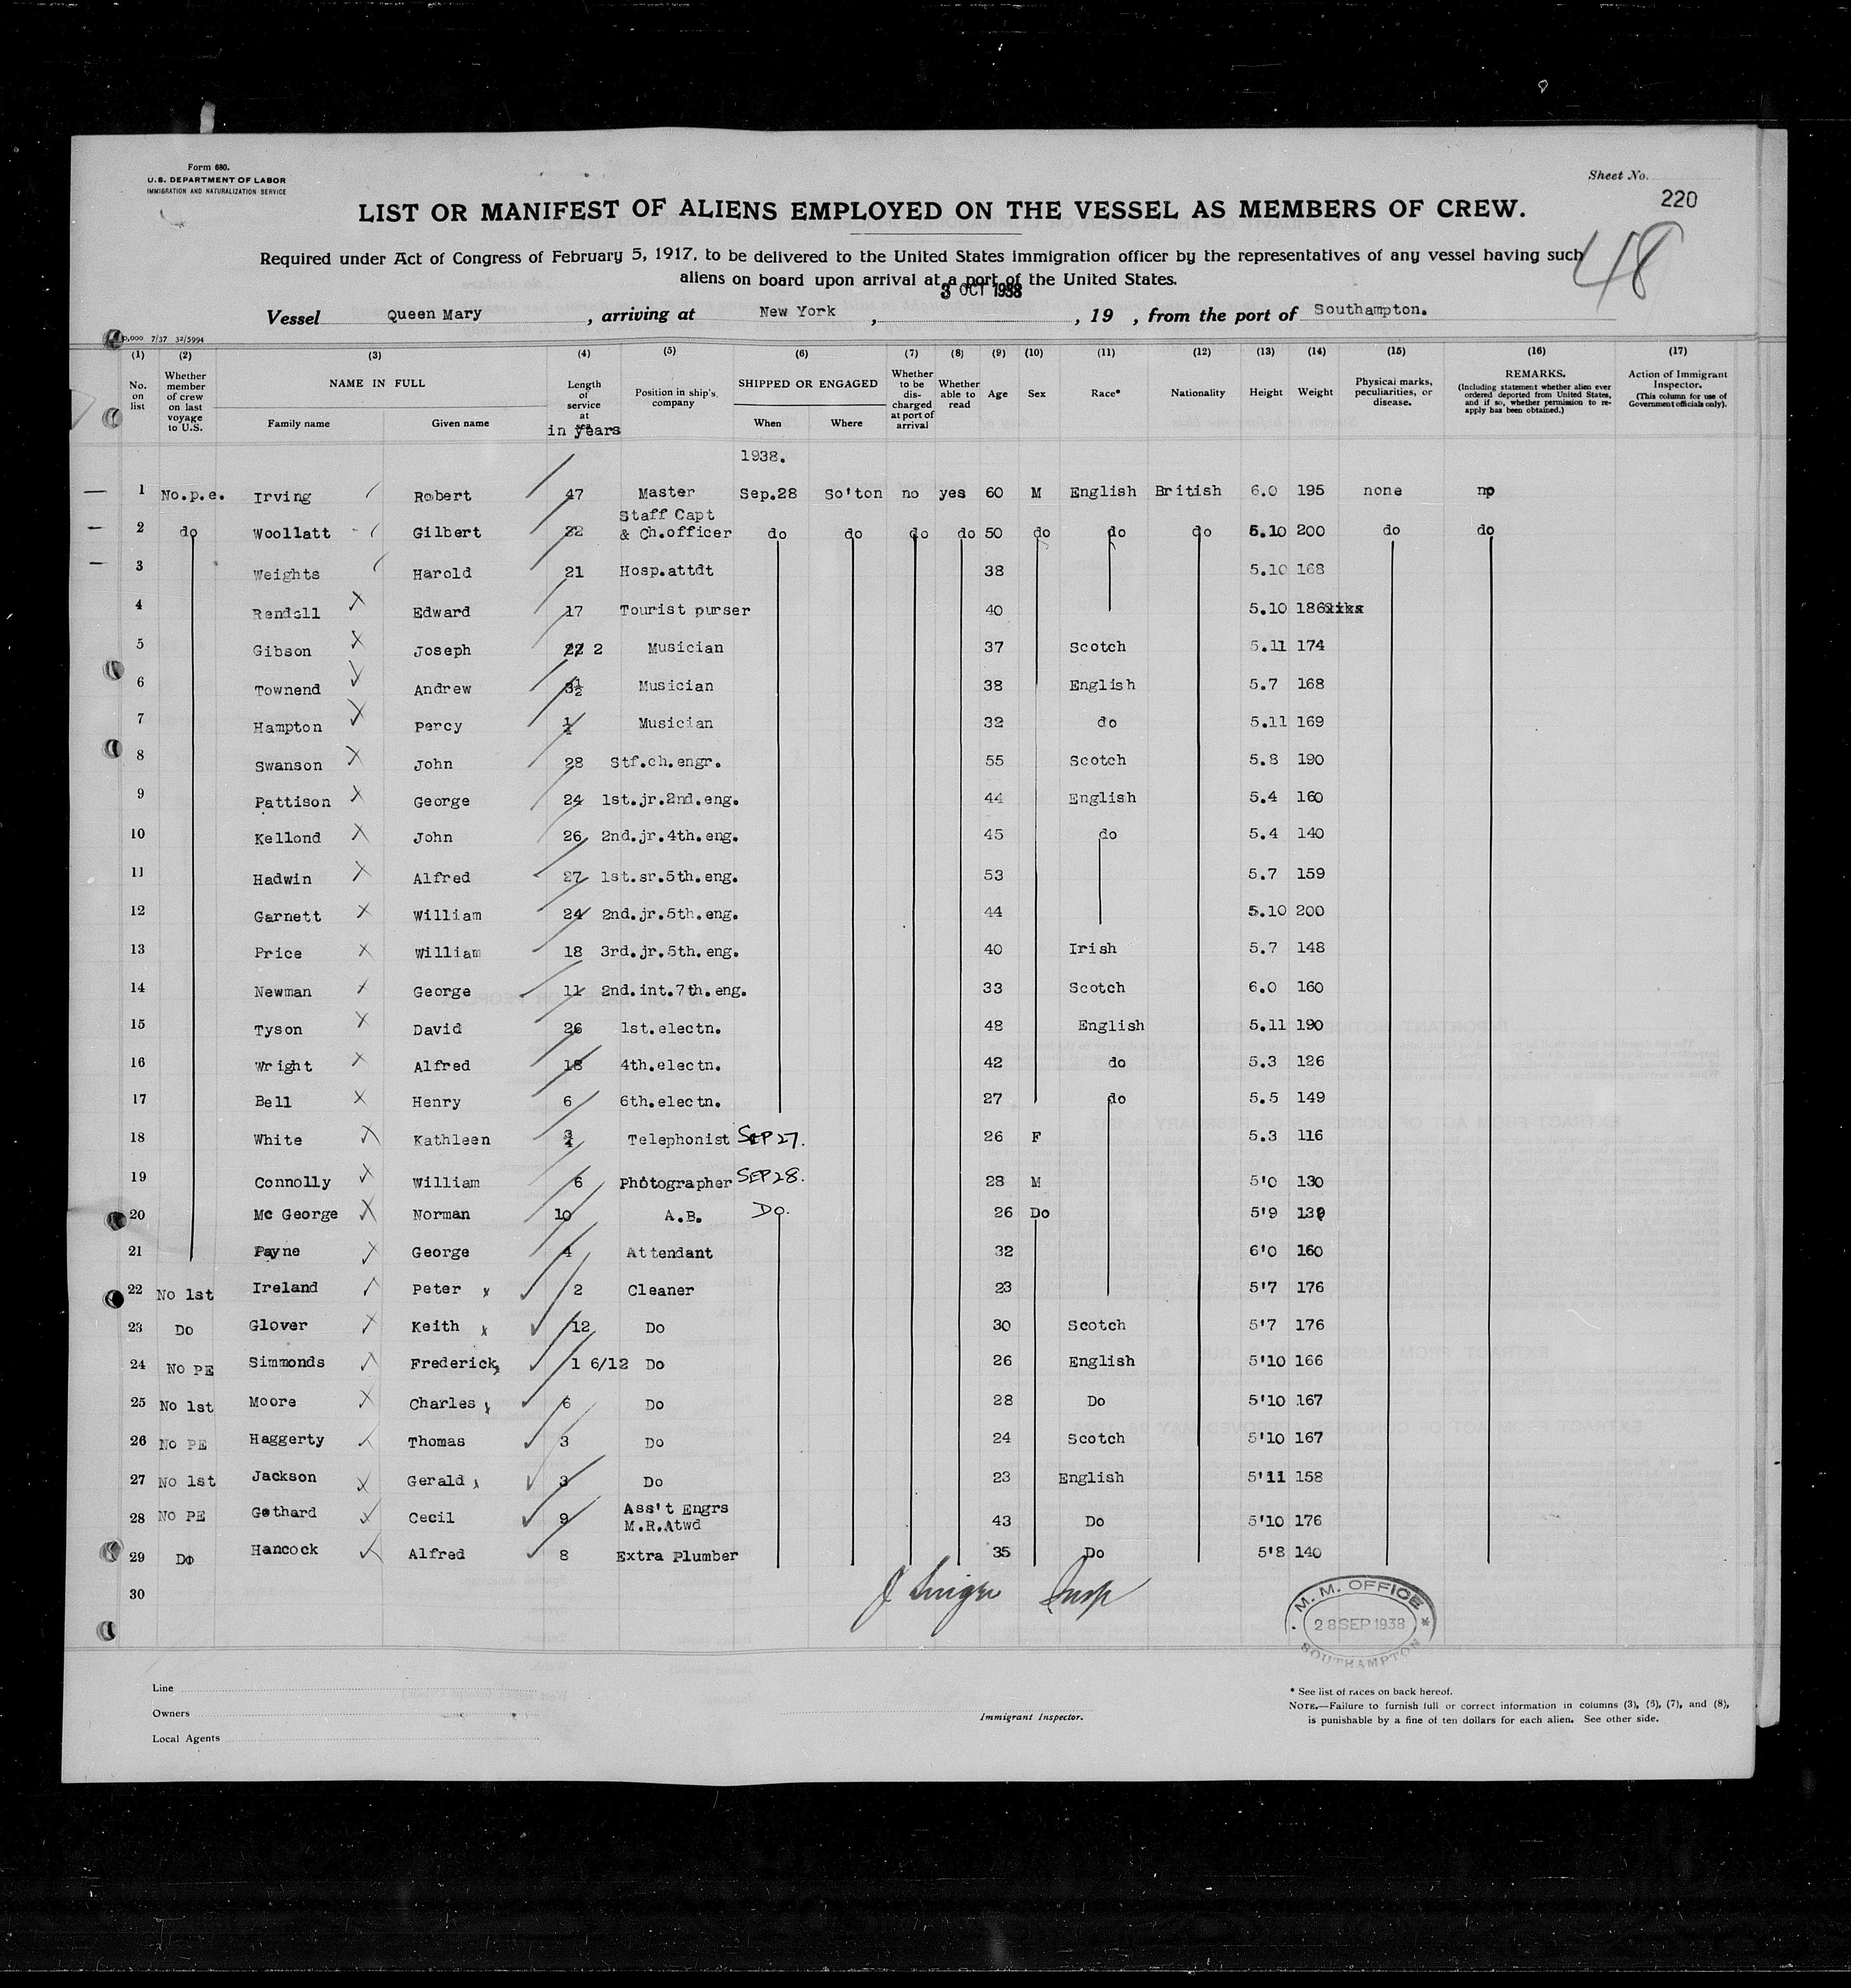 Form 680.
U.S. DEPARTMENT OF LABOR
IMMIGRATION AND NATURALIZATION SERVICE
Sheet No.
220
48
LIST OR MANIFEST OF ALIENS EMPLOYED ON THE VESSEL AS MEMBERS OF CREW.
Required under Act of Congress of February 5, 1917, to be delivered to the United States immigration officer by the representatives of any vessel having such
aliens on board upon arrival at a port of the United States.
3 OCT 1938
Vessel Queen Mary, arriving at New York, , 19 , from the port of Southampton.
0,000 7/37 32/5994
(1) (2) (3) (4) (5) (6) (7) (8) (9) (10) (11) (12) (13) (14) (15) (16) (17)
No. on list
Whether member of crew on last voyage to U.S.
NAME IN FULL
Family name
Given name
Length of service at
in years
Position in ship's company
SHIPPED OR ENGAGED
When
Where
Whether to be discharged at port of arrival
Whether able to read
Age
Sex
Race*
Nationality
Height
Weight
Physical marks, peculiarities, or disease.
REMARKS.
(Including statement whether alien ever ordered deported from United States, and if so, whether permission to reapply has been obtained.)
Action of Immigrant Inspector.
(This column for use of Government officials only).
1938.
1 No.p.e. Irving Robert 47 Master Sep.28 So'ton no yes 60 M English British 6.0 195 none no
2 do Woollatt Gilbert 32 Staff Capt & Ch.officer do do do do 50 do do do 5.10 200 do do
3 Weights Harold 21 Hosp.attdt 38 5.10 168
4 Rendell Edward 17 Tourist purser 40 5.10 186
5 Gibson Joseph 22 2 Musician 37 Scotch 5.11 174
6 Townend Andrew 3½ Musician 38 English 5.7 168
7 Hampton Percy Musician 32 do 5.11 169
8 Swanson John 28 Stf.ch.engr. 55 Scotch 5.8 190
9 Pattison George 24 1st.jr.2nd.eng. 44 English 5.4 160
10 Kellond John 26 2nd.jr.4th.eng. 45 do 5.4 140
11 Hadwin Alfred 27 1st.sr.5th.eng. 53 5.7 159
12 Garnett William 24 2nd.jr.5th.eng. 44 5.10 200
13 Price William 18 3rd.jr.5th.eng. 40 Irish 5.7 148
14 Newman George 11 2nd.int.7th.eng. 33 Scotch 6.0 160
15 Tyson David 26 1st.electn. 48 English 5.11 190
16 Wright Alfred 18 4th.electn. 42 do 5.3 126
17 Bell Henry 6 6th.electn. 27 do 5.5 149
18 White Kathleen ¾ Telephonist SEP 27. 26 F 5.3 116
19 Connolly William 6 Photographer SEP 28. 28 M 5'0 130
20 Mc George Norman 10 A.B. Do. 26 Do 5'9 139
21 Payne George 4 Attendant 32 6'0 160
22 No 1st Ireland Peter x 2 Cleaner 23 5'7 176
23 Do Glover Keith x 12 Do 30 Scotch 5'7 176
24 No PE Simmonds Frederick 1 6/12 Do 26 English 5'10 166
25 No 1st Moore Charles 6 Do 28 Do 5'10 167
26 No PE Haggerty Thomas 3 Do 24 Scotch 5'10 167
27 No 1st Jackson Gerald 3 Do 23 English 5'11 158
28 No PE Gothard Cecil 9 Ass't Engrs M.R.Atwd 43 Do 5'10 176
29 Do Hancock Alfred 8 Extra Plumber 35 Do 5'8 140
30
Insp
M. M. OFFICE
28 SEP 1938
SOUTHAMPTON
Line
Owners
Local Agents
Immigrant Inspector.
* See list of races on back hereof.
NOTE.—Failure to furnish full or correct information in columns (3), (5), (7), and (8),
is punishable by a fine of ten dollars for each alien. See other side.